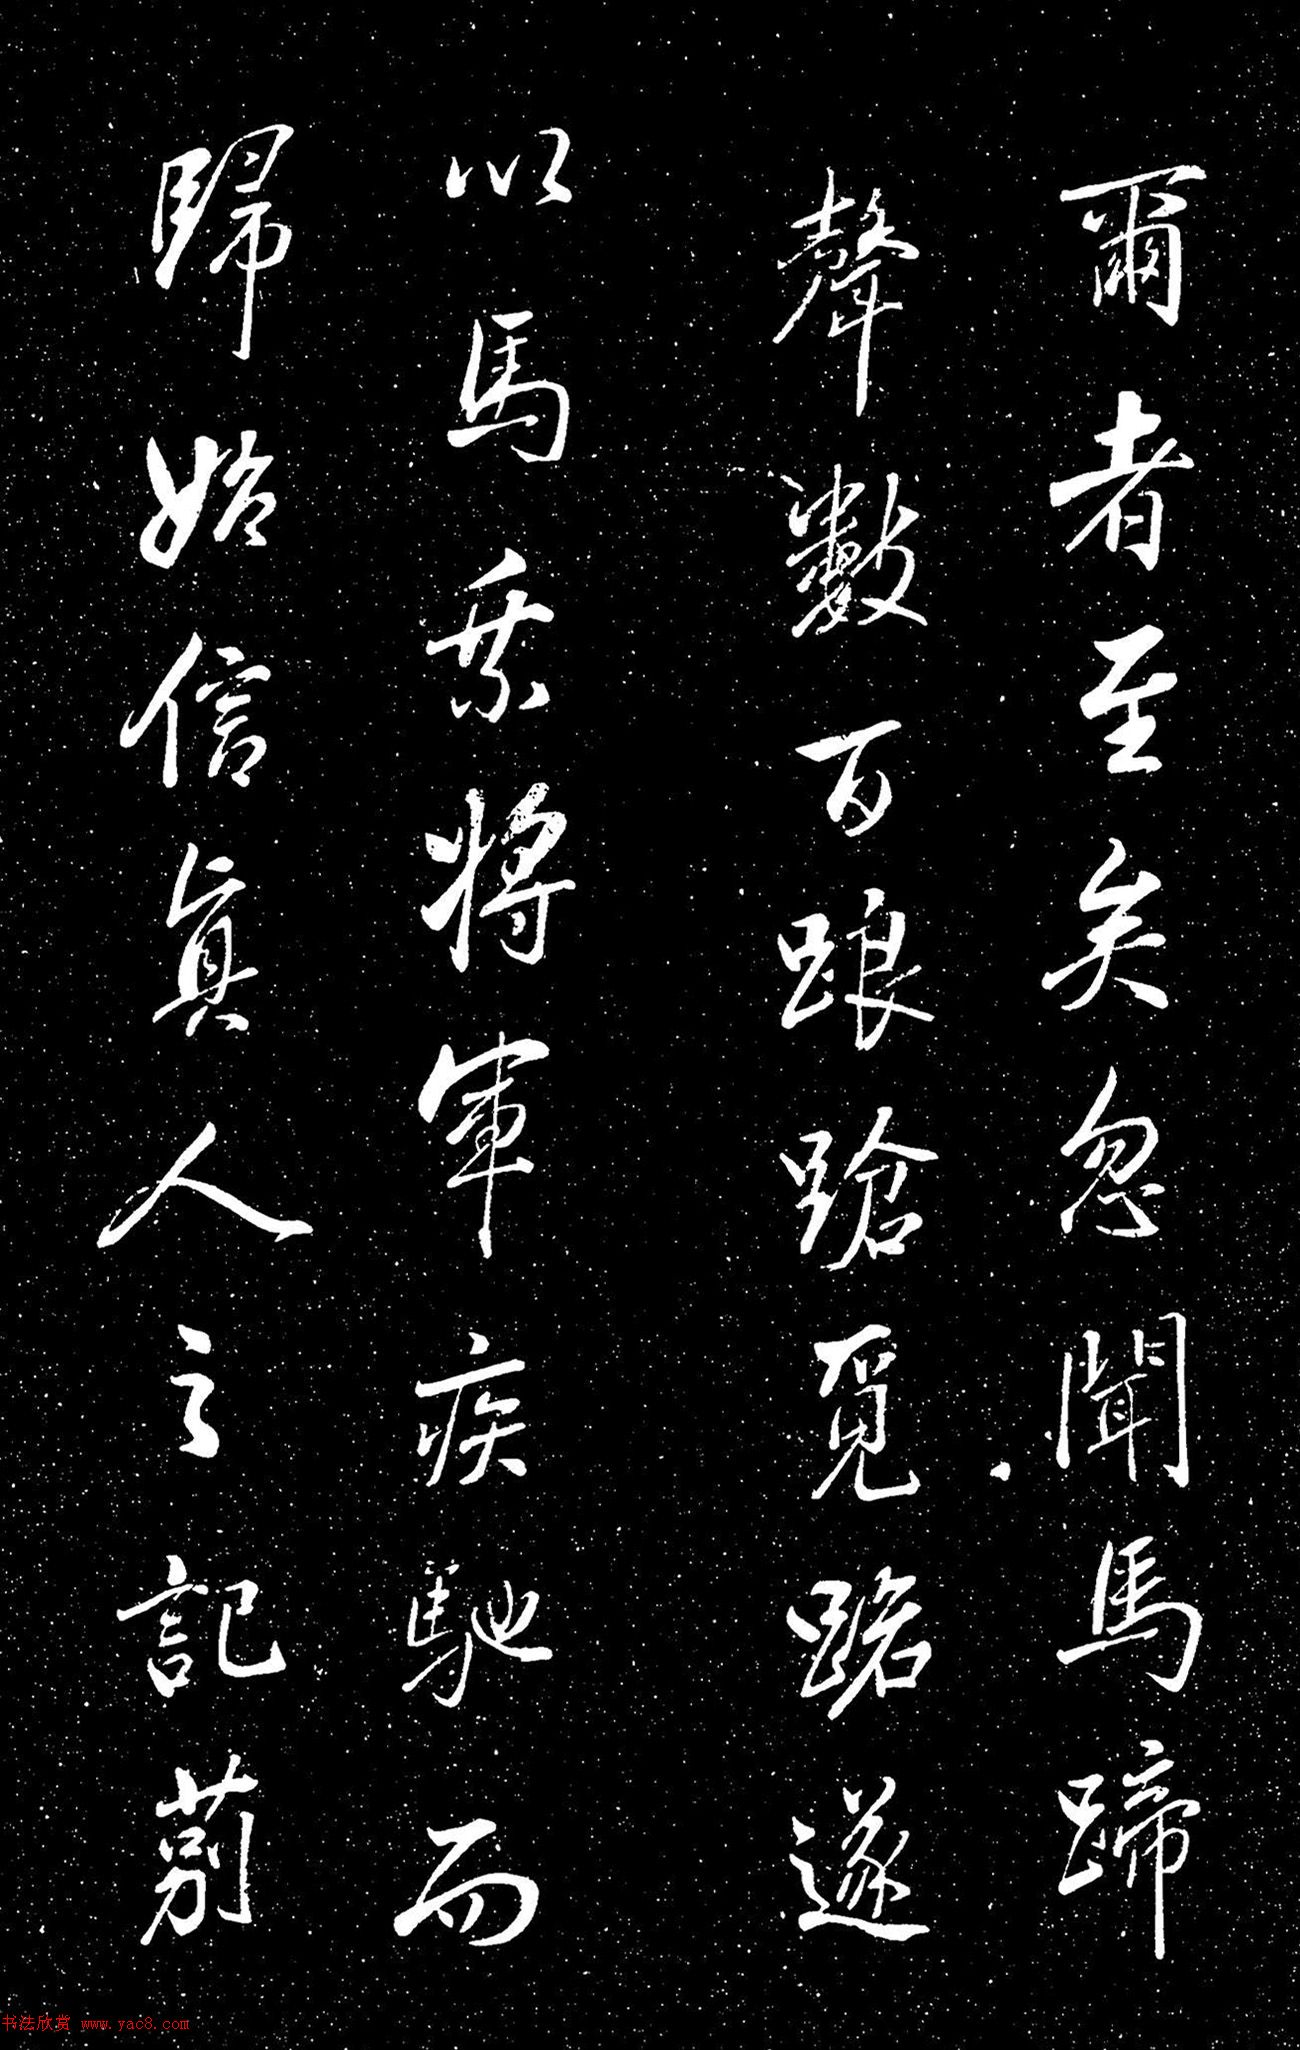 爾者至矣忽聞馬蹄
聲數百踉蹌覓路遂
以馬乘將軍疾馳而
歸始信真人之記莂
书法欣赏 www.yac8.com